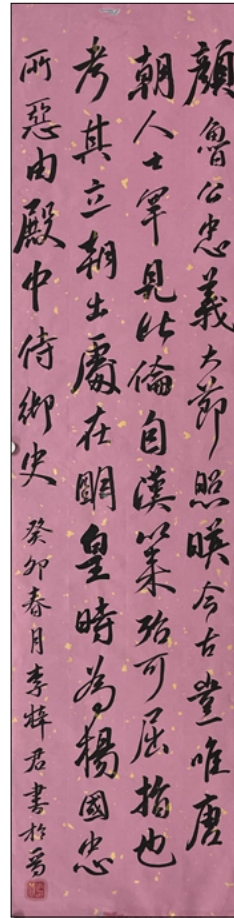 顔魯公忠義大節照暎今古豈唯唐
朝人士罕見比倫自漢以來殆可屈指也
考其立朝出處在眀皇時為楊國忠
所惡由殿中侍御史 癸卯春月李梓君書於晉